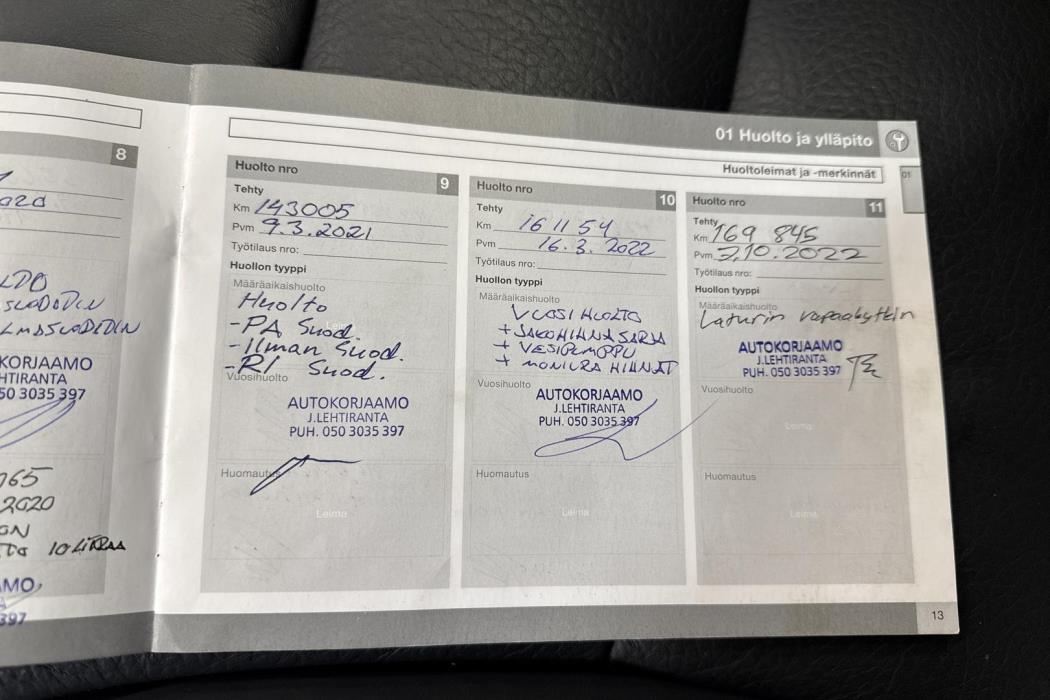 8
2020
SUODODIN
KORJAAMO
HTIRANTA
50 3035 397
065
2020
10 LITRAA
AMO
397
01 Huolto ja ylläpito
Huoltoleimat ja -merkinnät
01
Huolto nro
9
Tehty
Km 143005
Pvm 9.3.2021
Työtilaus nro:
Huollon tyyppi
Määräaikaishuolto
Huolto
-PA Suod.
-Ilman Suod.
-RI Suod.
Vuosihuolto
AUTOKORJAAMO
J.LEHTIRANTA
PUH. 050 3035 397
Huomautus
Leima
Huolto nro
10
Tehty
Km 161154
Pvm 16.3.2022
Työtilaus nro:
Huollon tyyppi
Määräaikaishuolto
VUOSIHUOLTO
+ JAKOHIHNASARJA
+ VESIPUMPPU
+ MONIURA HIHNAT
Vuosihuolto
AUTOKORJAAMO
J.LEHTIRANTA
PUH. 050 3035 397
Huomautus
Leima
Huolto nro
11
Tehty
Km 169 845
Pvm 7.10.2022
Työtilaus nro:
Huollon tyyppi
Määräaikaishuolto
Laturin vapaakytkin
AUTOKORJAAMO
J.LEHTIRANTA
PUH. 050 3035 397
Vuosihuolto
Leima
Huomautus
Leima
13